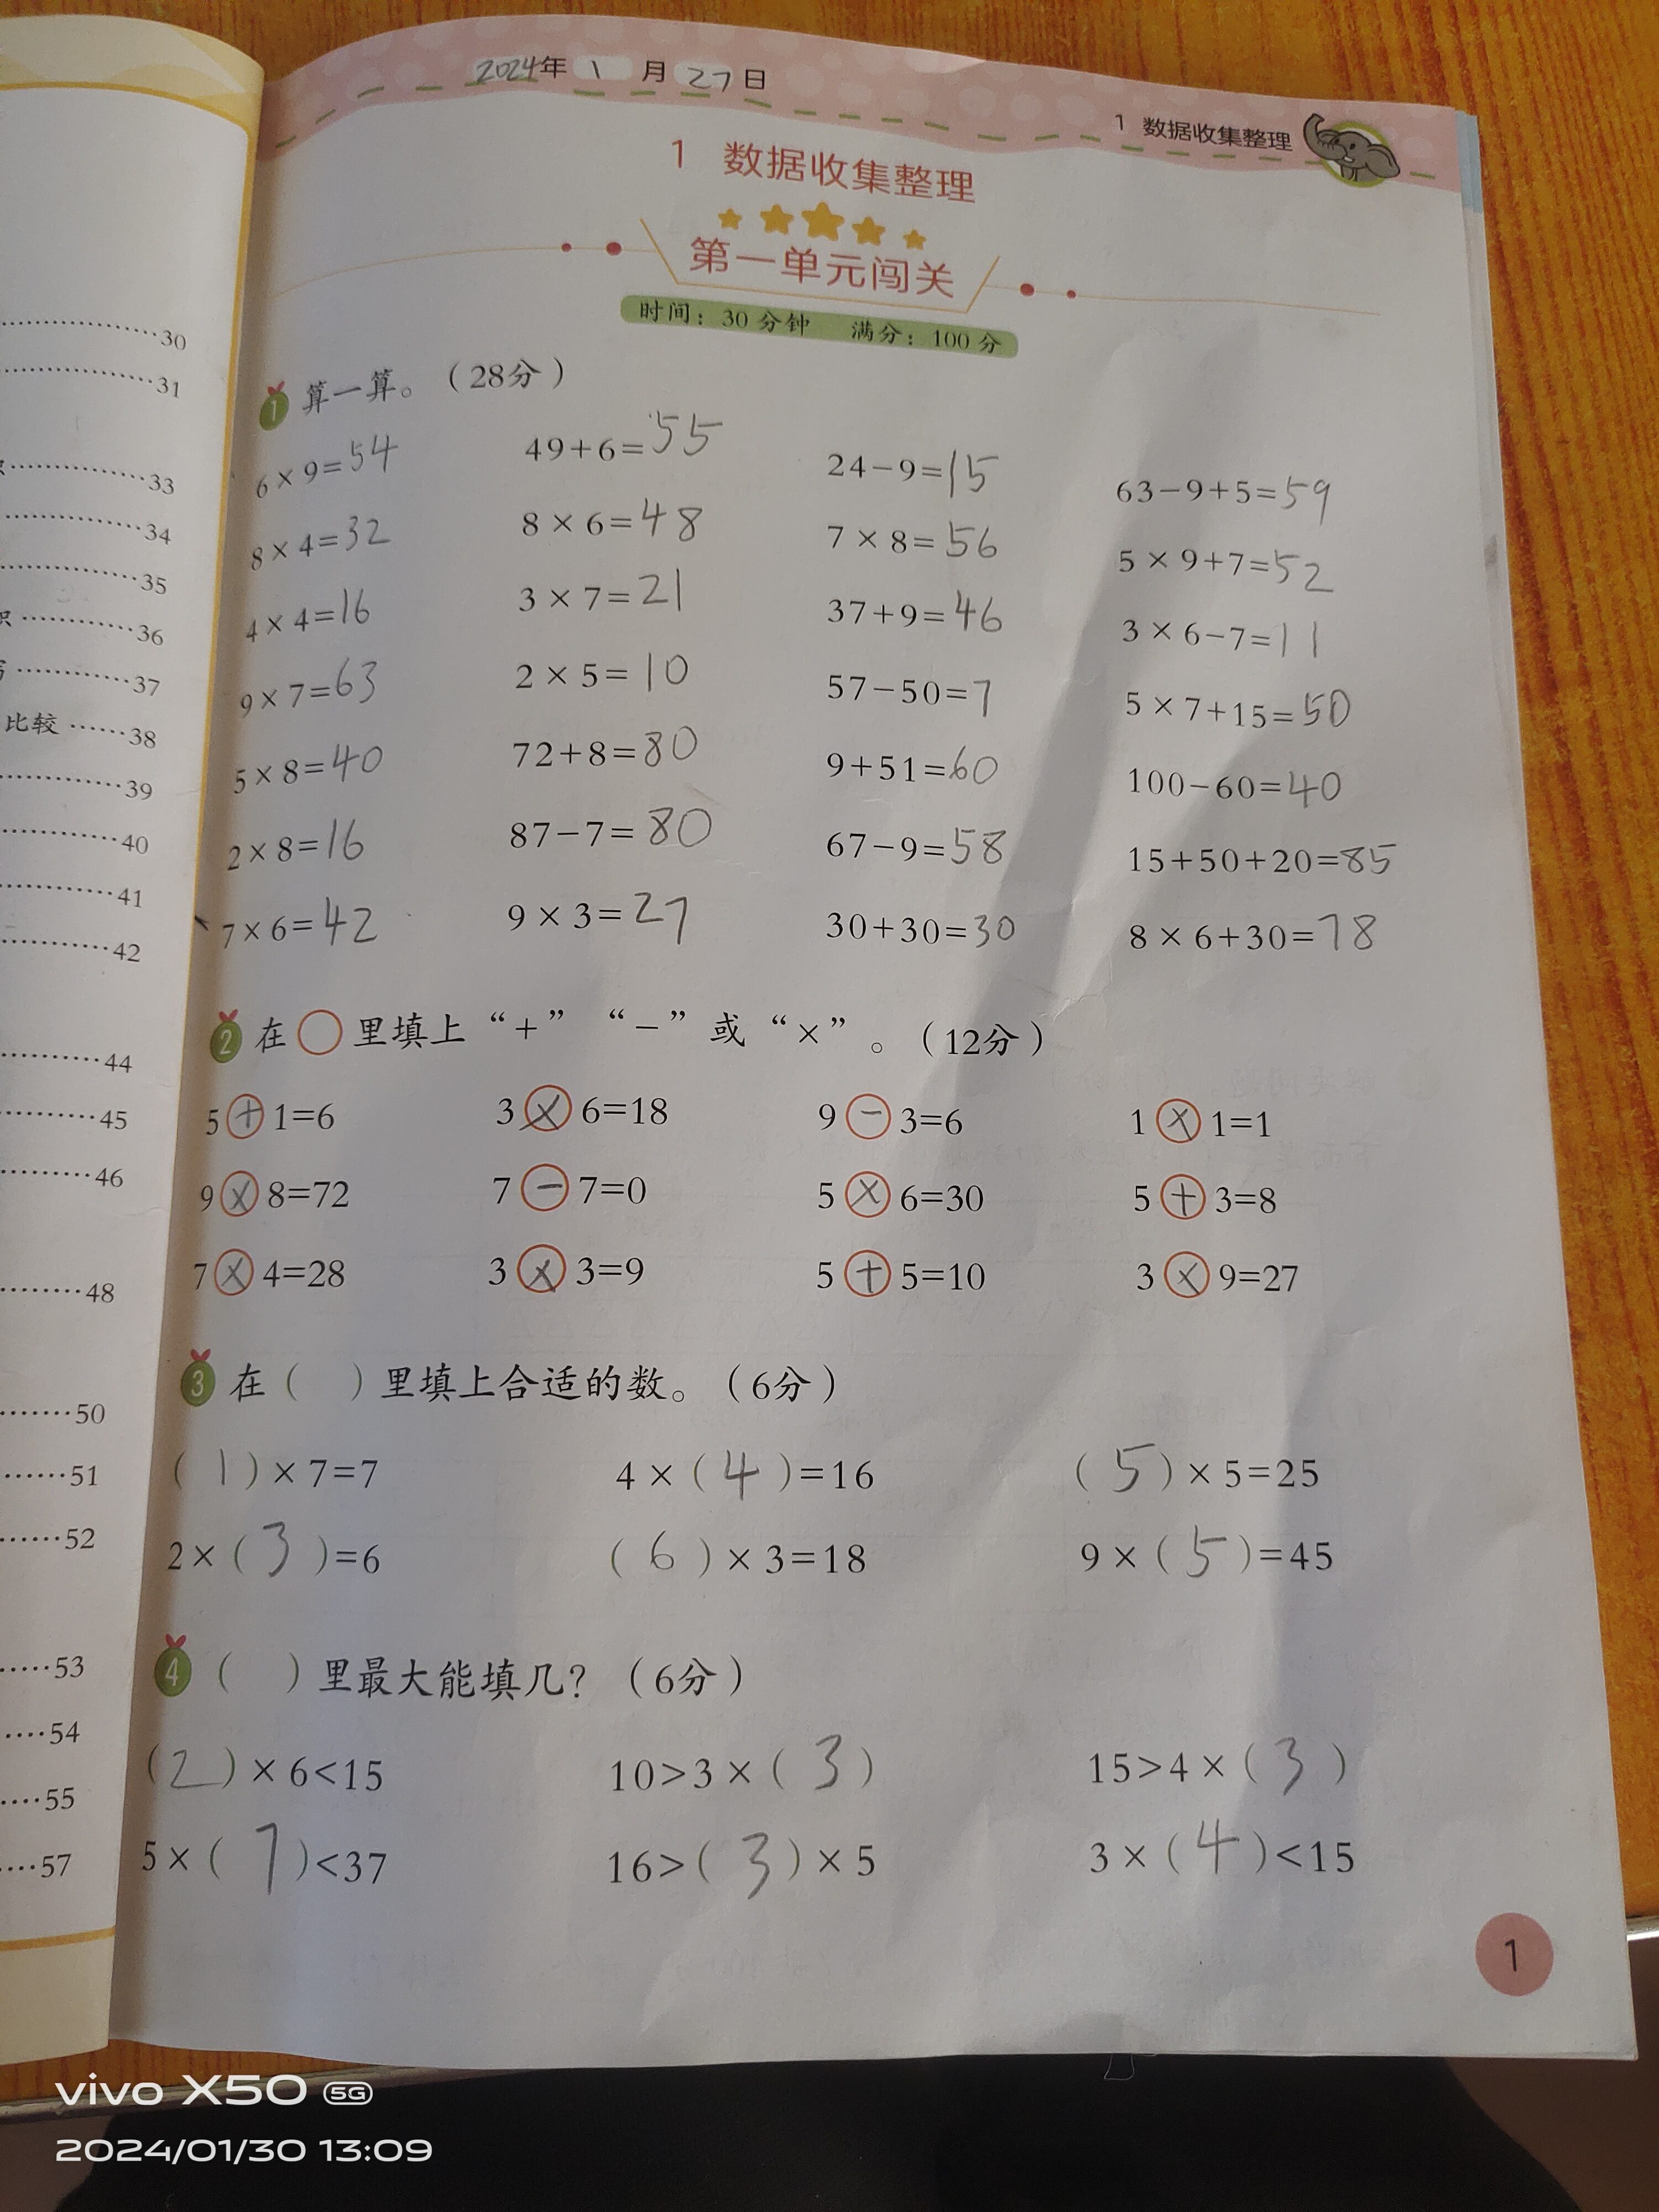 2024年 1 月 27 日
1 数据收集整理
1 数据收集整理
第一单元闯关
时间：30分钟 满分：100分
1 算一算。（28分）
6×9=54 49+6=55 24-9=15 63-9+5=59
8×4=32 8×6=48 7×8=56 5×9+7=52
4×4=16 3×7=21 37+9=46 3×6-7=11
9×7=63 2×5=10 57-50=7 5×7+15=50
5×8=40 72+8=80 9+51=60 100-60=40
2×8=16 87-7=80 67-9=58 15+50+20=85
7×6=42 9×3=27 30+30=30 8×6+30=78
2 在○里填上“+”“-”或“×”。（12分）
5+1=6 3×6=18 9-3=6 1×1=1
9×8=72 7-7=0 5×6=30 5+3=8
7×4=28 3×3=9 5+5=10 3×9=27
3 在（ ）里填上合适的数。（6分）
（1）×7=7 4×（4）=16 （5）×5=25
2×（3）=6 （6）×3=18 9×（5）=45
4 （ ）里最大能填几？（6分）
（2）×6<15 10>3×（3） 15>4×（3）
5×（7）<37 16>（3）×5 3×（4）<15
1
……30
……31
……33
……34
……35
……36
……37
比较……38
……39
……40
……41
……42
……44
……45
……46
……48
……50
……51
……52
……53
……54
……55
……57
vivo X50 5G
2024/01/30 13:09